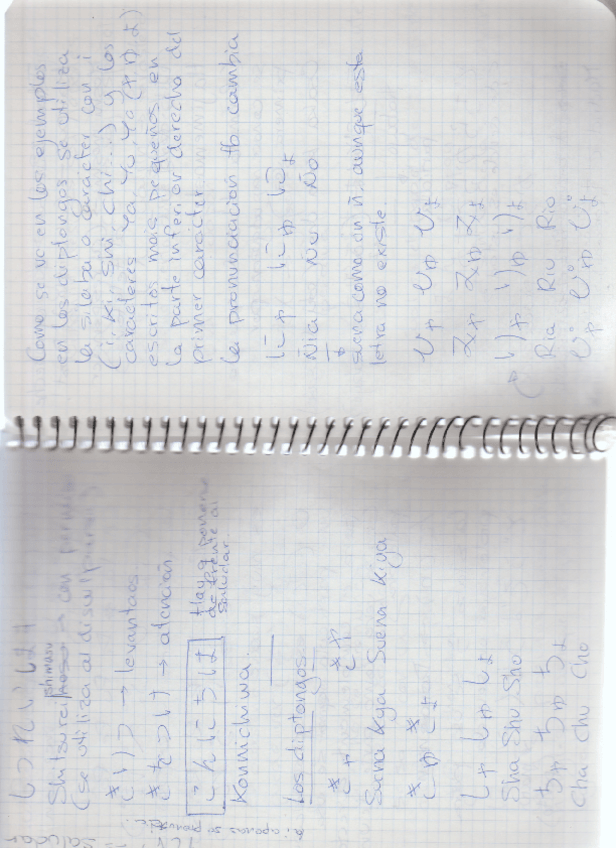 Shitsurei shimasu → con permiso
(se utiliza al disculparse)
きりつ → levantaos
きをつけ → atención.
こんにちは Hay q ponerse de frente al saludar.
Konnichiwa.
Los diptongos
きゃ きや
Suena Kya Suena Kiya
きゅ きょ
しゃ しゅ しょ
Sha Shu Sho
ちゃ ちゅ ちょ
Cha chu cho
Como se ve en los ejemplos
en los diptongos se utiliza
la sílaba o carácter con i
(i, Ki, Shi, Chi...) y los
caracteres Ya, Yu, Yo (ゃ ゅ ょ)
escritos más pequeños en
la parte inferior derecha del
primer carácter.
La pronunciación tb cambia
にゃ にゅ にょ
Ñia Ñu Ño
suena como en ñ, aunque esta
letra no existe
ひゃ ひゅ ひょ
みゃ みゅ みょ
りゃ りゅ りょ
Ria Riu Rio
ぴゃ ぴゅ ぴょ